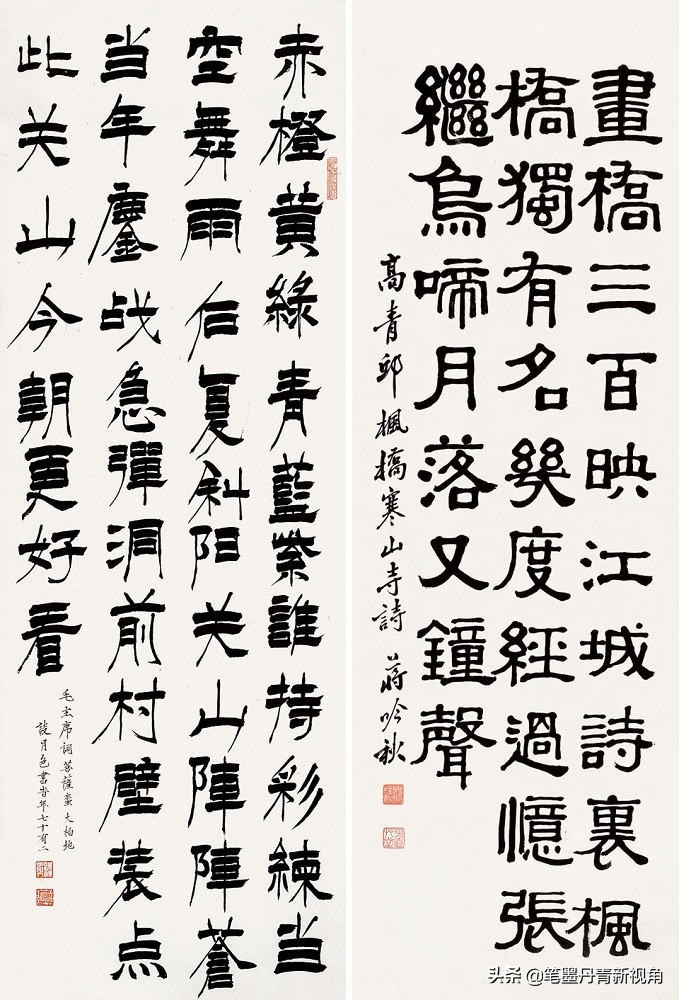 畫橋三百映江城詩裏楓
橋獨有名幾度經過憶張
繼烏啼月落又鐘聲
高青邱楓橋寒山寺詩 蔣吟秋
赤橙黃綠青藍紫誰持彩練当
空舞雨后复斜阳关山陣陣蒼
当年鏖战急彈洞前村壁装点
此关山今朝更好看
毛主席词菩薩蛮大柏地
談月色書时年七十有二
头条 @笔墨丹青新视角